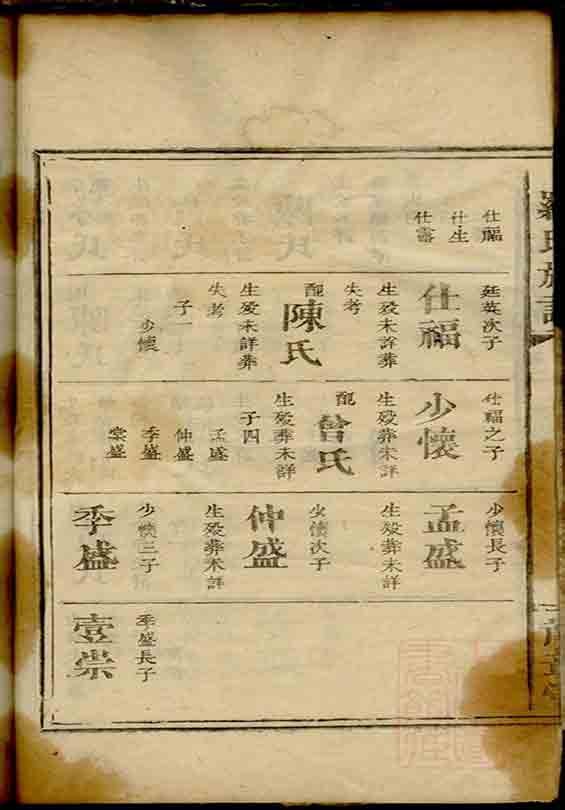 羅氏族譜
仕福
仕生
仕富
廷英次子
仕福
生殁未詳葬
失考
配
陳氏
生殁未詳葬
失考
子一
少懷
仕福之子
少懷
生殁葬未詳
配
曾氏
生殁葬未詳
子四
孟盛
仲盛
季盛
棠盛
少懷長子
孟盛
生殁葬未詳
少懷次子
仲盛
生殁葬未詳
少懷三子
季盛
季盛長子
壹崇